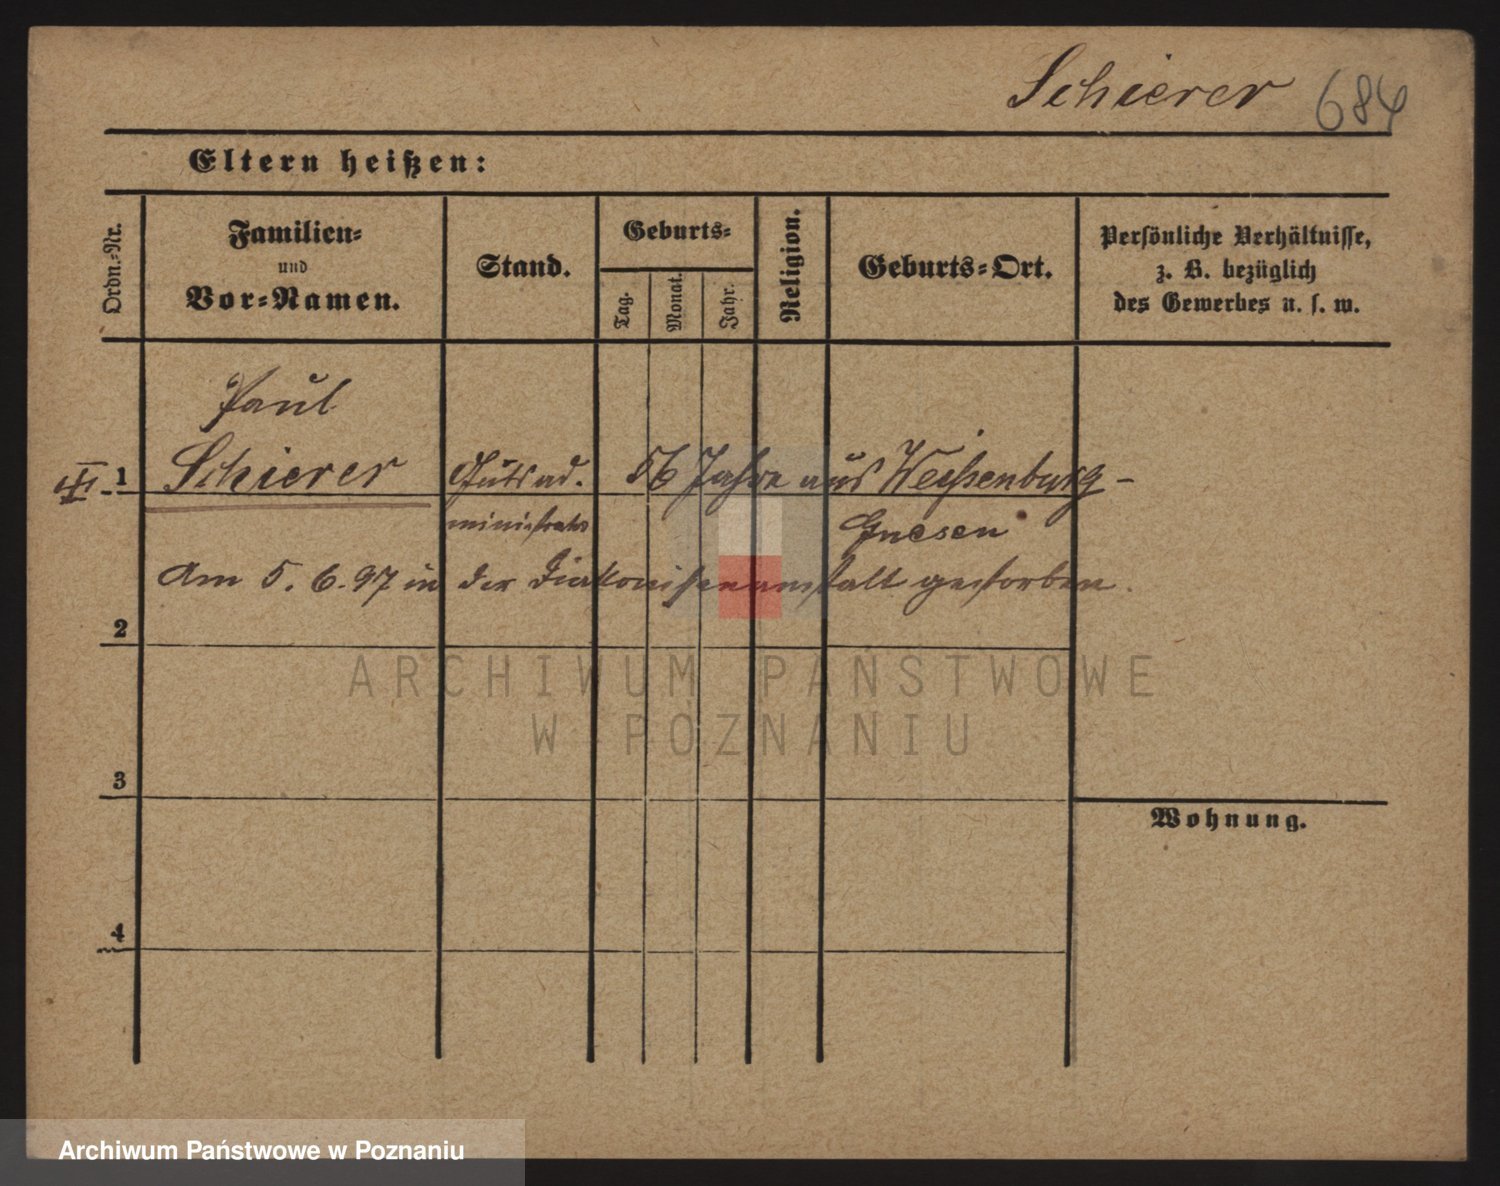 Schierer 684
Eltern heißen:
Ordn.-Nr.
Familien-
und
Vor-Namen.
Stand.
Geburts-
Tag.
Monat.
Jahr.
Religion.
Geburts-Ort.
Persönliche Verhältnisse,
z. B. bezüglich
des Gewerbes u. s. w.
Paul
1 Schierer Gutsad- 56 Jahre aus Weißenburg -
ministrator Gnesen
Am 5. 6. 97 in der Diakonissenanstalt gestorben.
2
ARCHIWUM PAŃSTWOWE
W POZNANIU
3
Wohnung.
4
Archiwum Państwowe w Poznaniu